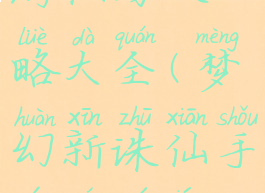 lüè dà quán mèng
略大全(梦
huàn xīn zhū xiān shǒu
幻新诛仙手